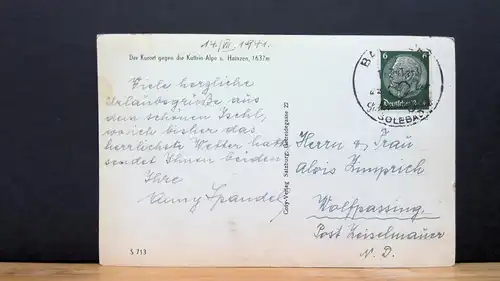 14./VII. 1941.
Der Kurort gegen die Kattrin-Alpe u. Hainzen, 1637m
Viele herzliche
Urlaubsgrüße aus
dem schönen Ischl,
wo ich bisher das
herrlichste Wetter hatte
sendet Ihnen beiden
Ihre
Anny Spandel
S 713
Cosy-Verlag Salzburg, Getreidegasse 22
6 6
Deutsches R
SOLEBA
Herrn u. Frau
Alois Zimprich
Wolfpassing,
Post Zeiselmauer
N. D.